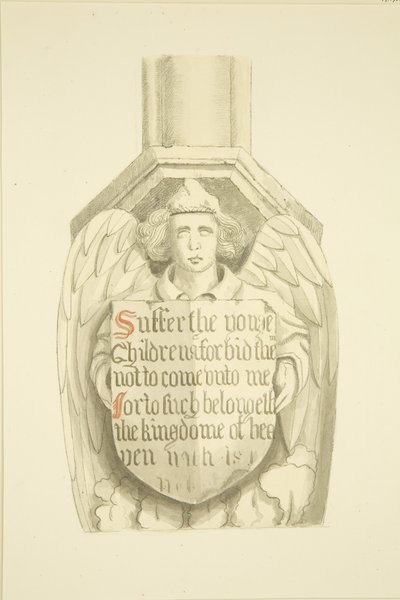 Suffer the yonge
Children & forbid the
not to come vnto me
for to such belongeth
the kingdome of hea
ven